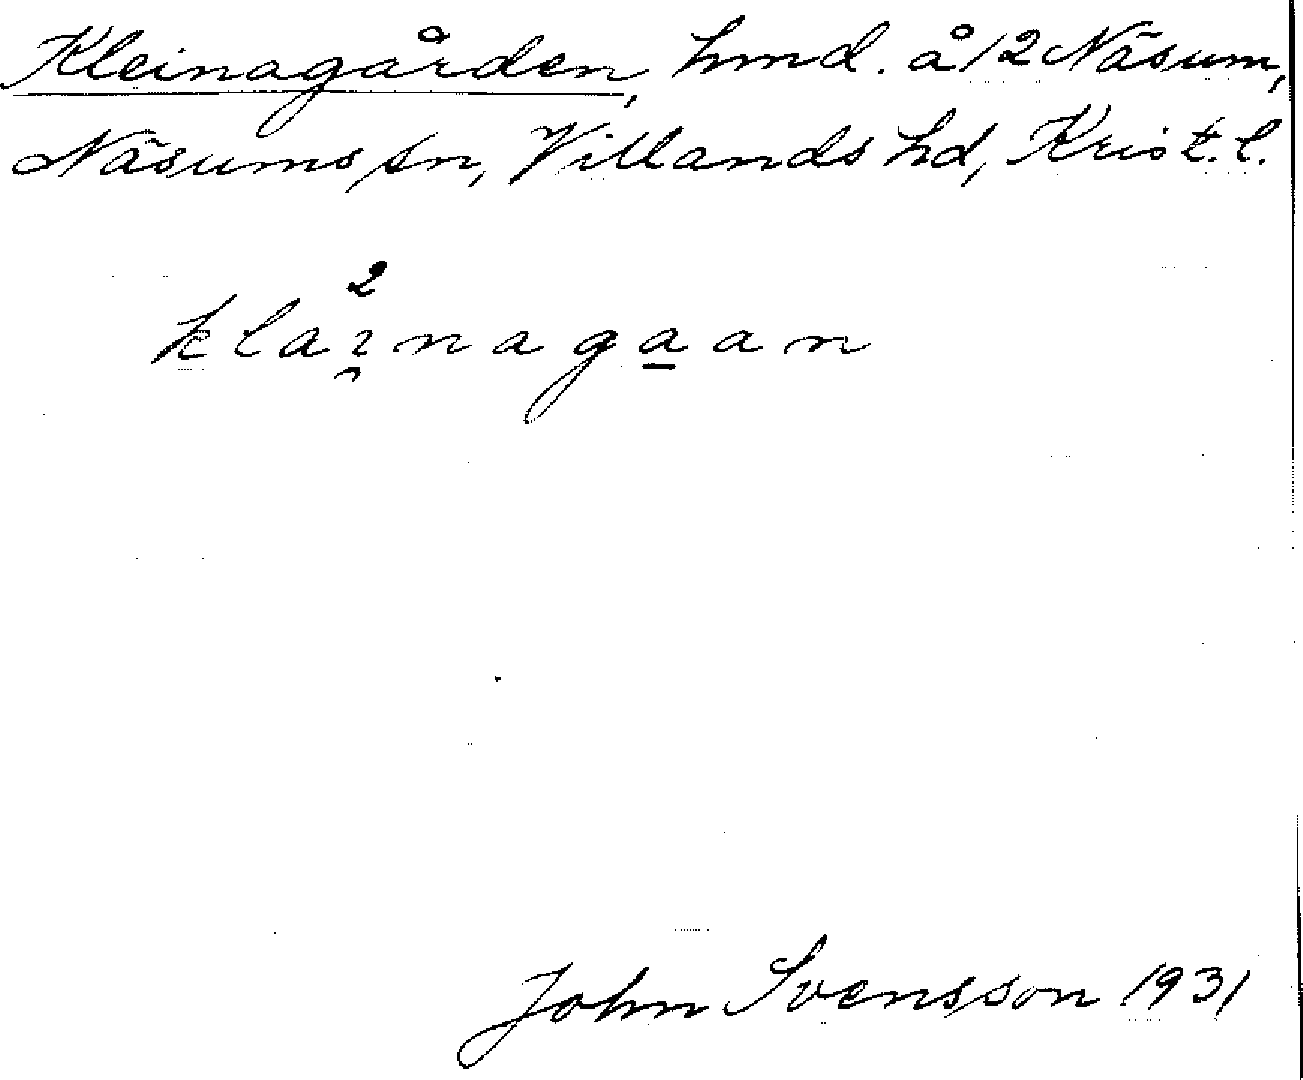 Kleinagården, hmd. å 12 Näsum,
Näsums sn, Villands hd, Krist. l.
2
klaɪ̯naga̱an
John Svensson 1931